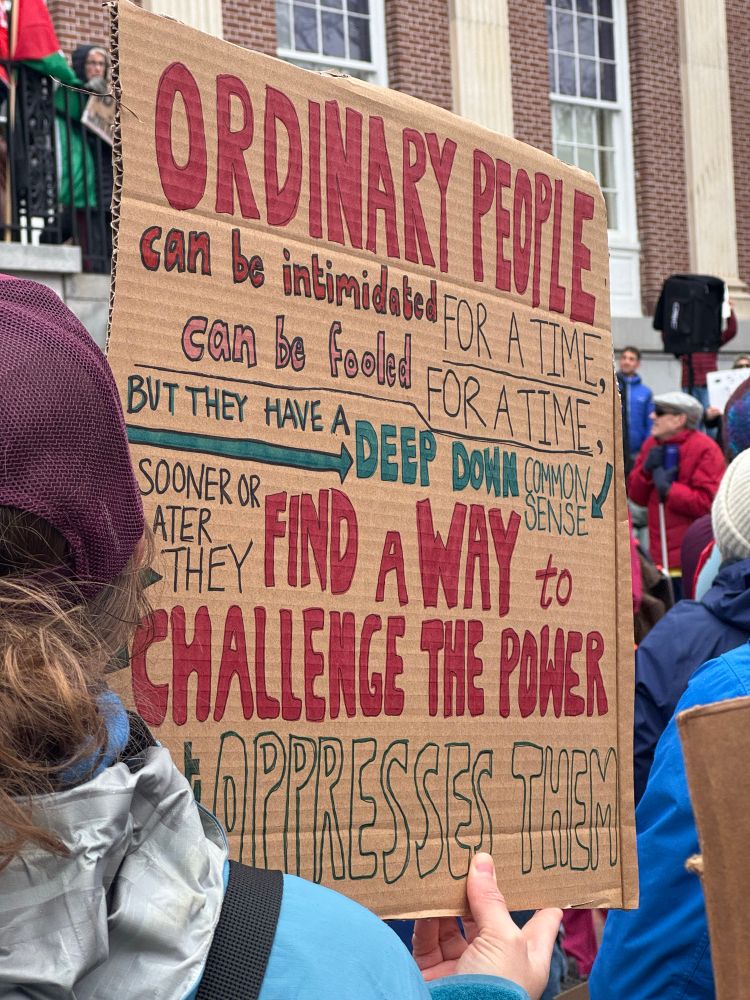 ORDINARY PEOPLE
can be intimidated FOR A TIME,
can be fooled FOR A TIME,
BUT THEY HAVE A
DEEP DOWN COMMON SENSE
SOONER OR
ATER
THEY FIND A WAY to
CHALLENGE THE POWER
t OPPRESSES THEM